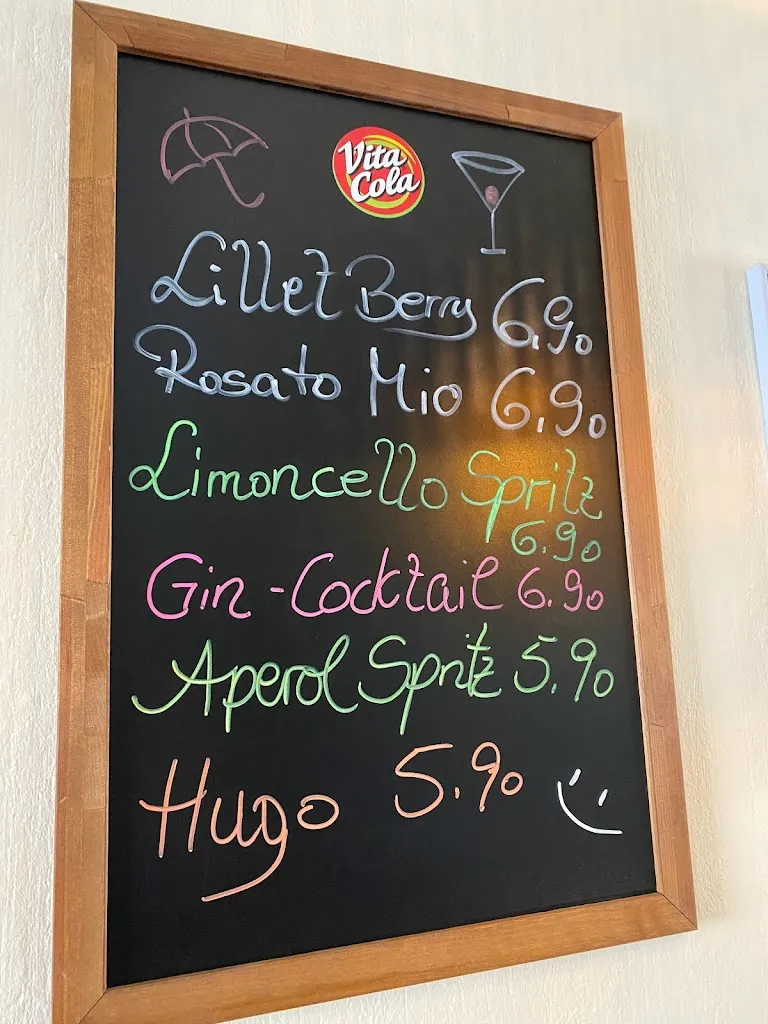 Vita
Cola
Lillet Berry 6.90
Rosato Mio 6.90
Limoncello Spritz
6.90
Gin-Cocktail 6.90
Aperol Spritz 5.90
Hugo 5.90